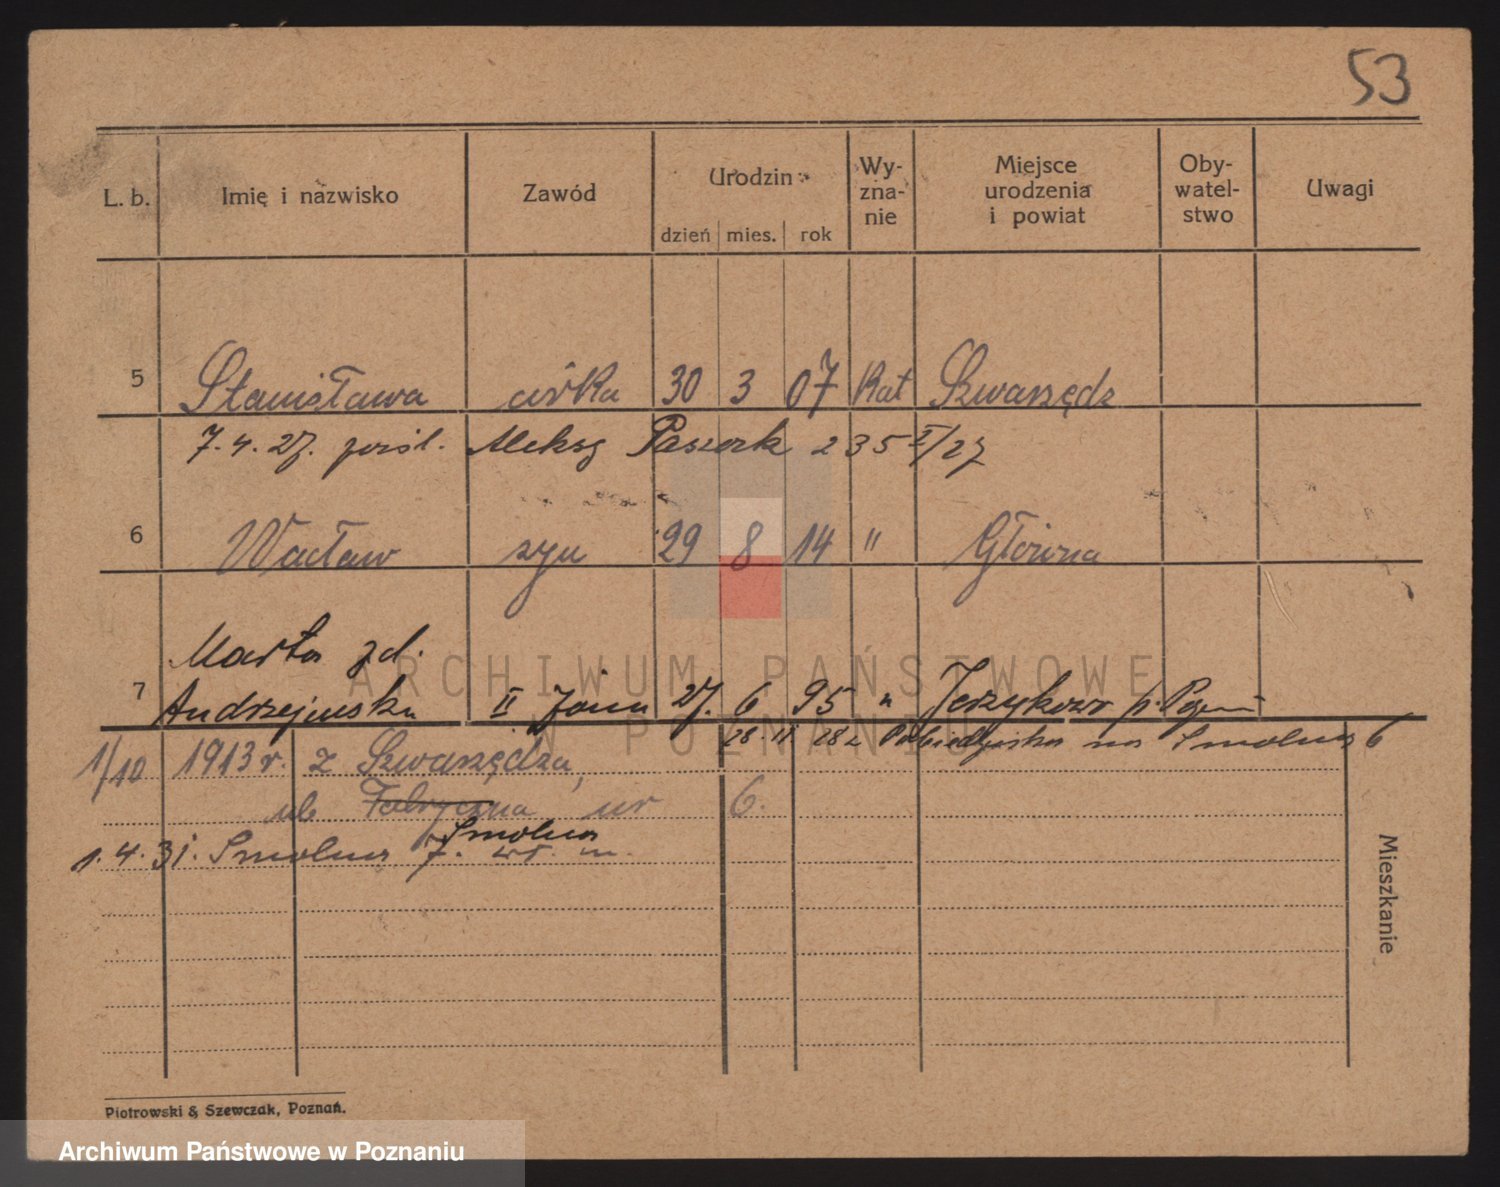 53
L. b. Imię i nazwisko Zawód Urodzin Wy- zna- nie Miejsce urodzenia i powiat Oby- watel- stwo Uwagi
dzień mies. rok
5 Stanisława córka 30 3 07 Kat Szwarzędz
7. 4. 27. Aleksg 235
6 Wacław syn 29 8 14 " Główna
Marta zd.
7 Andrzejewska II żona 27. 6 95 " Jerzykowo p.
28. 11. na Smolna 6
1/10 1913 r. z Szwarzędza,
ul. Fabryczna nr 6.
Smolna
1. 4. 31. Smolna 7. wł. m.
Mieszkanie
Piotrowski & Szewczak, Poznań.
ARCHIWUM PAŃSTWOWE
W POZNANIU
Archiwum Państwowe w Poznaniu